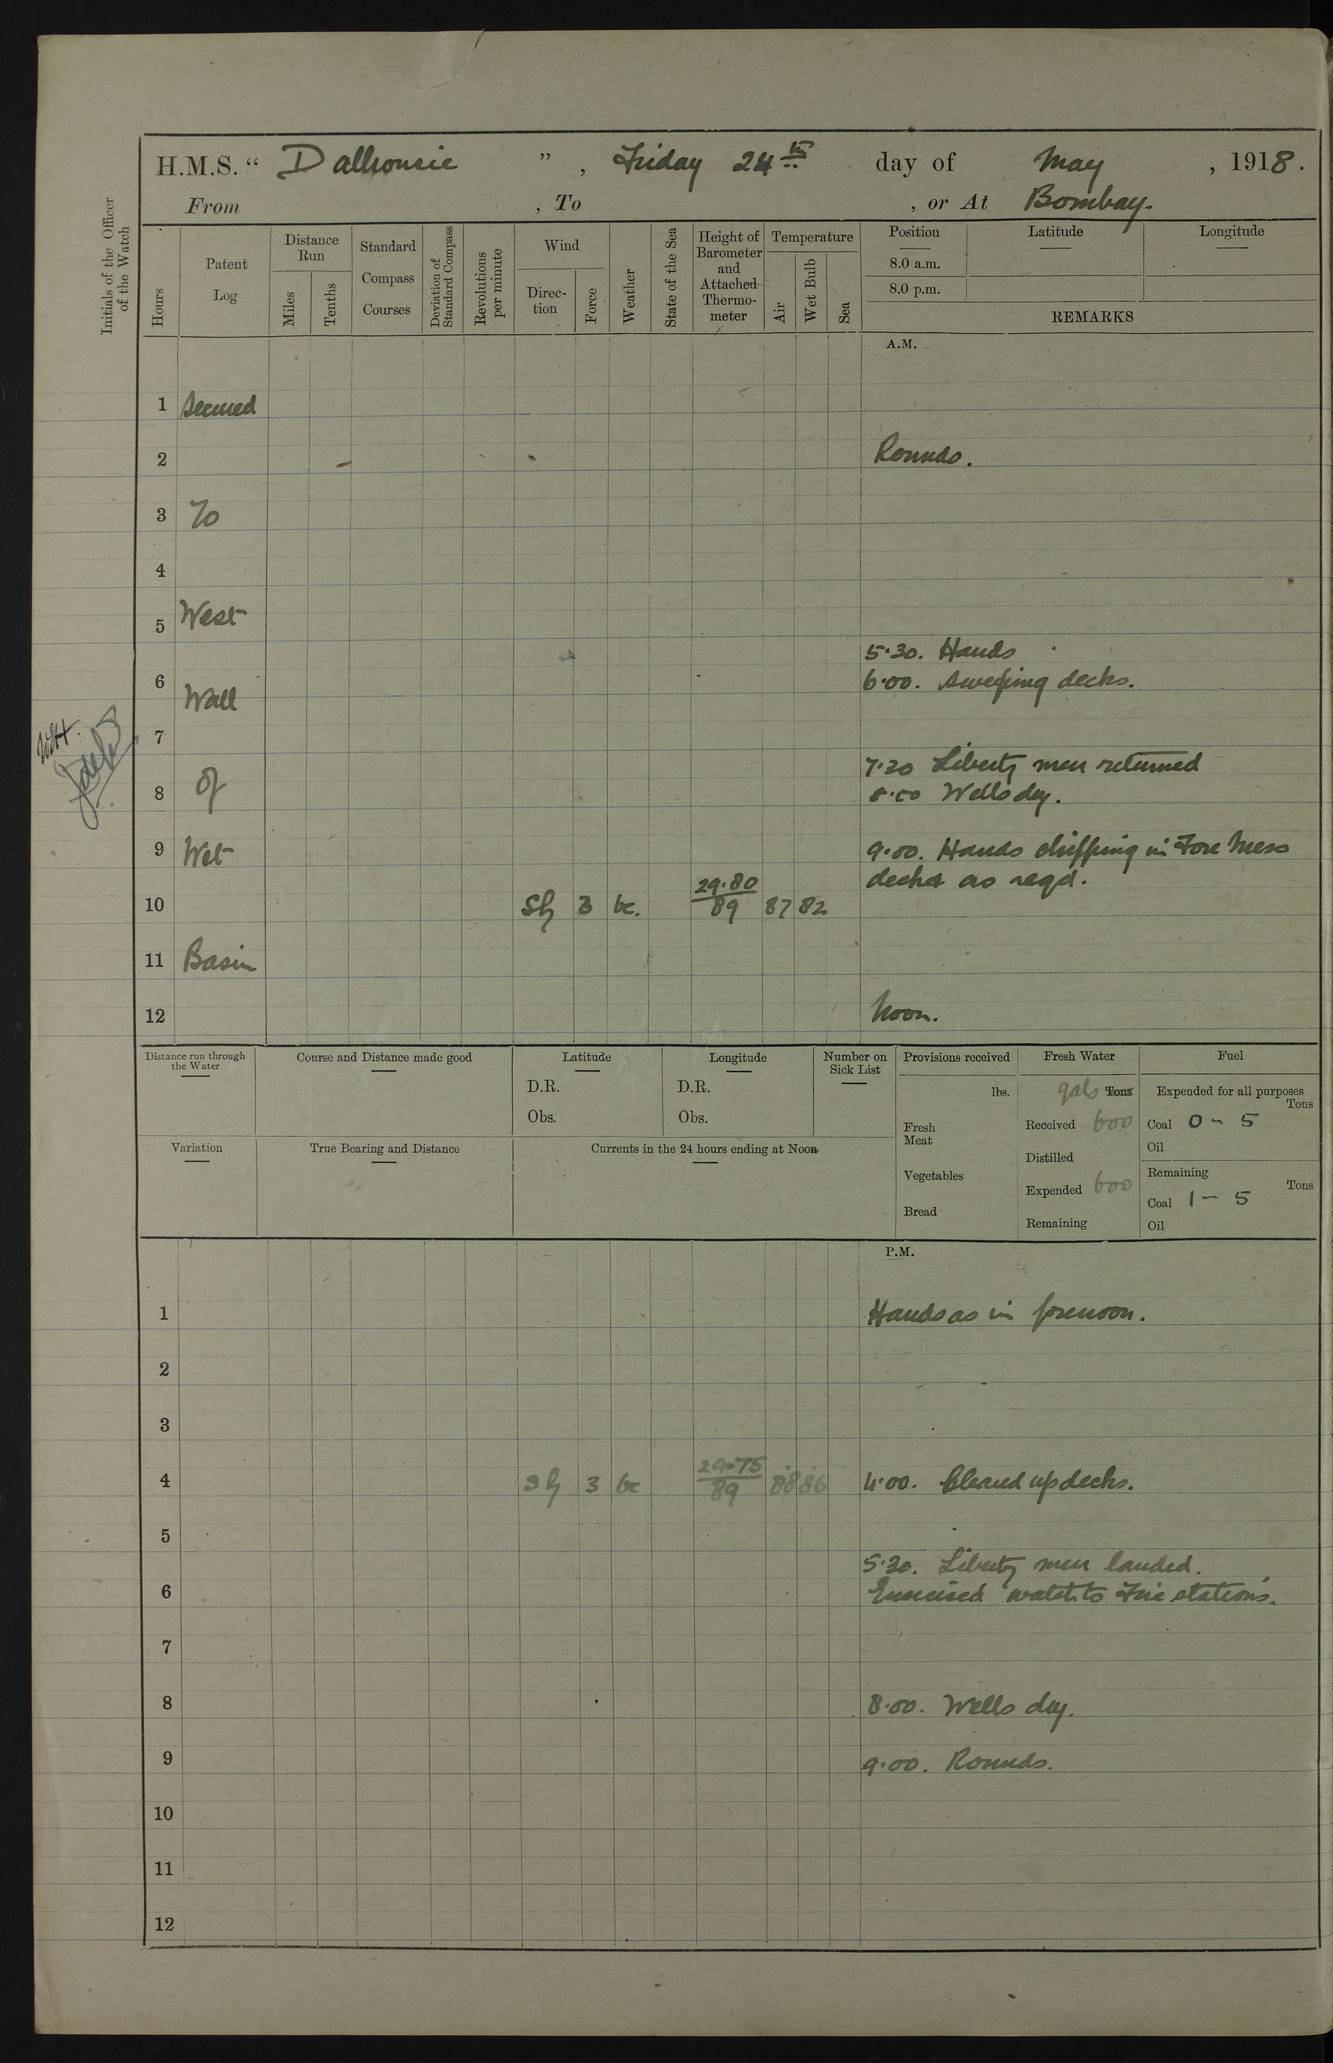 H.M.S. “ Dalhousie ” , Friday 24th day of May , 1918 .
From , To , or At Bombay.
Initials of the Officer of the Watch
Hours
Patent Log
Distance Run
Miles
Tenths
Standard Compass Courses
Deviation of Standard Compass
Revolutions per minute
Wind
Direc- tion
Force
Weather
State of the Sea
Height of Barometer and Attached Thermo- meter
Temperature
Air
Wet Bulb
Sea
Position Latitude Longitude
8.0 a.m.
8.0 p.m.
REMARKS
A.M.
1 Secured
2 Rounds.
3 To
4
5 West
5.30. Hands
6 6.00. Sweeping decks.
Wall
7
7.20 Liberty men returned
8 Of 8.00 Wells dry.
9 Wet 9.00. Hands chipping in Fore Mess
29.80 decks as reqd.
10 3 bc. 89 87 82
11 Basin
12 Noon.
Distance run through the Water
Course and Distance made good
Latitude
D.R.
Obs.
Longitude
D.R.
Obs.
Number on Sick List
Provisions received
lbs.
Fresh Meat
Vegetables
Bread
Fresh Water
gals Tons
Received 600
Distilled
Expended 600
Remaining
Fuel
Expended for all purposes
Tons
Coal 0 - 5
Oil
Remaining
Tons
Coal 1 - 5
Oil
Variation
True Bearing and Distance
Currents in the 24 hours ending at Noon
P.M.
1 Hands as in forenoon.
2
3
29.75
4 3 bc 89 88 86 4.00. Cleared up decks.
5
5.30. Liberty men landed.
6 Exercised watch to Fire stations.
7
8 8.00. Wells dry.
9 9.00. Rounds.
10
11
12